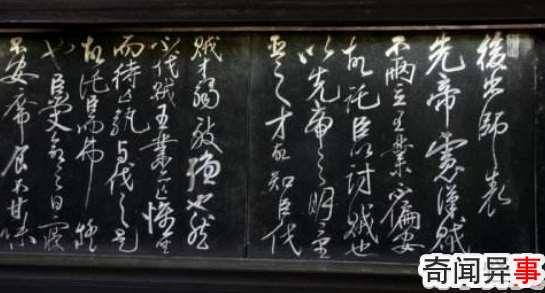 後出師表
先帝慮漢賊
不兩立王業不偏安
故託臣以討賊也
以先帝之明量
臣之才故知臣伐
賊才弱敵強也然
不伐賊王業亦亡惟坐
而待亡孰与伐之是
故託臣而弗疑
也臣受命之日寢
不安席食不甘味
奇闻异事